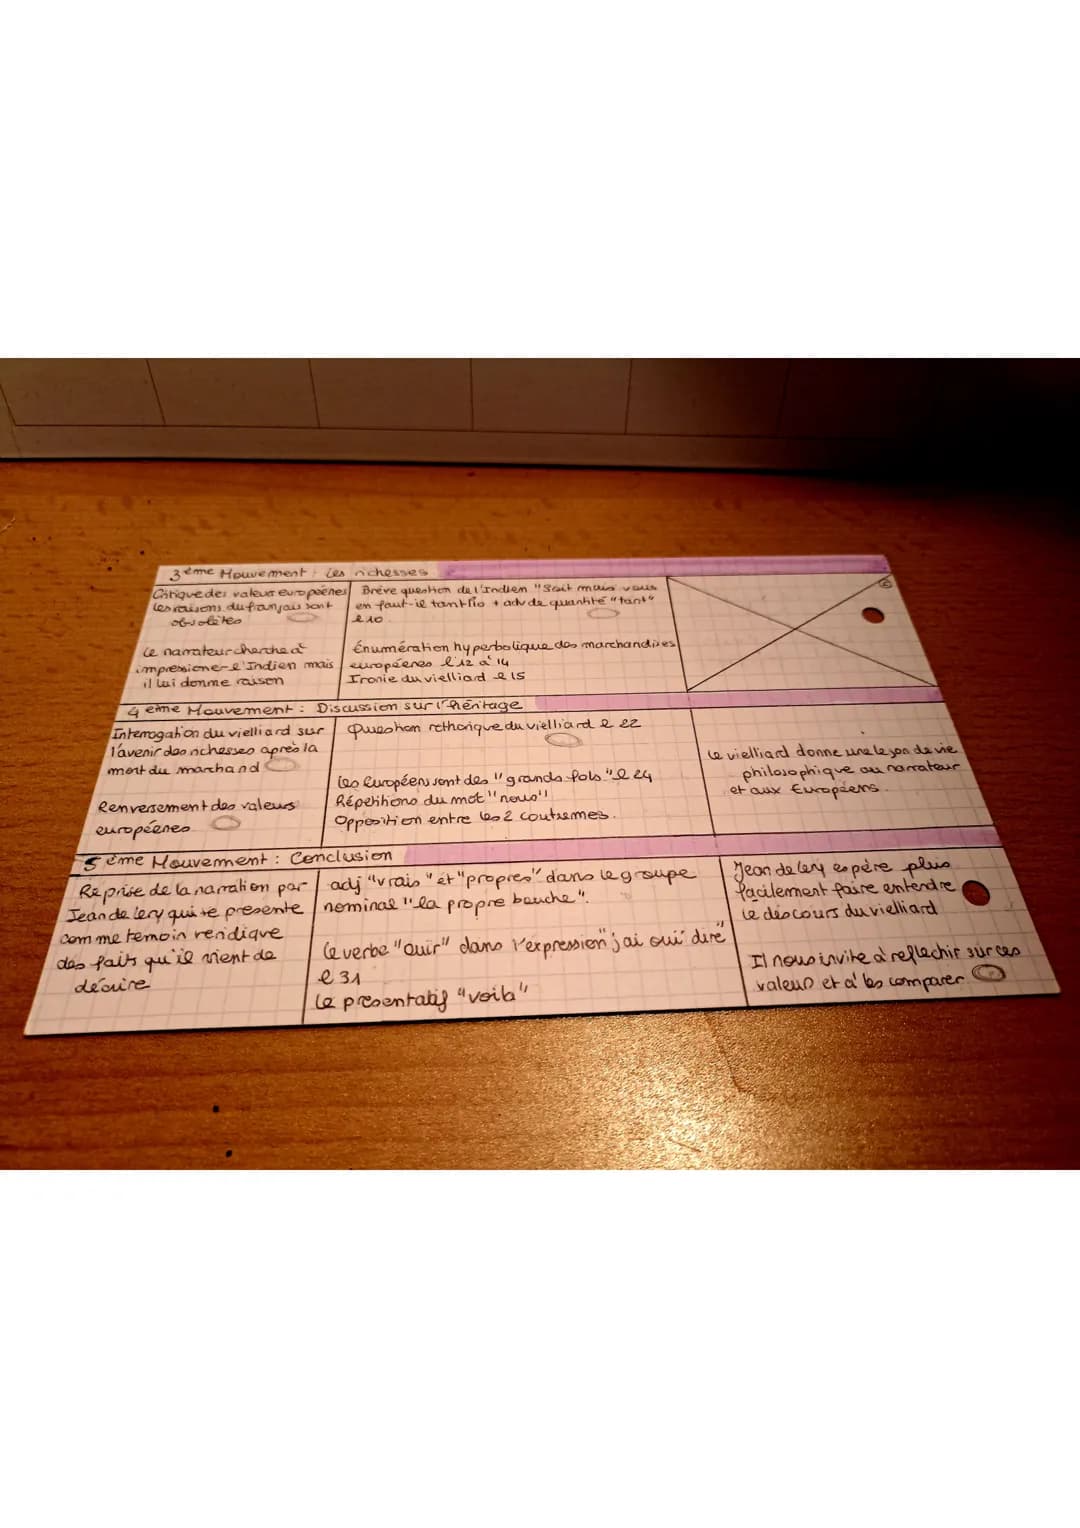 3ème Mouvement : Les richesses
Critique des valeurs européenes
les raisons du français sont
obsolètes
Le narrateur cherche à
impressioner l'Indien mais
il lui donne raison
Brève question de l'Indien "Soit mais vous
en faut-il tant ? io + adv de quantité "tant"
l 10.
Énumération hyperbolique des marchandises
européenes l 12 à 14
Ironie du vielliard l 15
4ème Mouvement : Discussion sur l'héritage
Interrogation du vielliard sur
l'avenir des richesses après la
mort du marchand
Renversement des valeurs
européenes
Question rethorique du vielliard l 22
les Européens sont des "grands fols" l 24
Répetitions du mot "nous"
Opposition entre les 2 coutumes.
Le vielliard donne une leçon de vie
philosophique au narrateur
et aux Européens.
5ème Mouvement : Conclusion
Reprise de la narration par
Jean de lery qui se presente
comme temoin veridique
des faits qu'il vient de
décrire
adj "vrais" et "propres" dans le groupe
nominal "la propre bouche".
Le verbe "ouir" dans l'expression "j'ai oui dire"
l 31
Le présentatif "voila"
Jean de lery espère plus
facilement faire entendre
le discours du vielliard
Il nous invite à reflechir sur ces
valeurs et à les comparer.